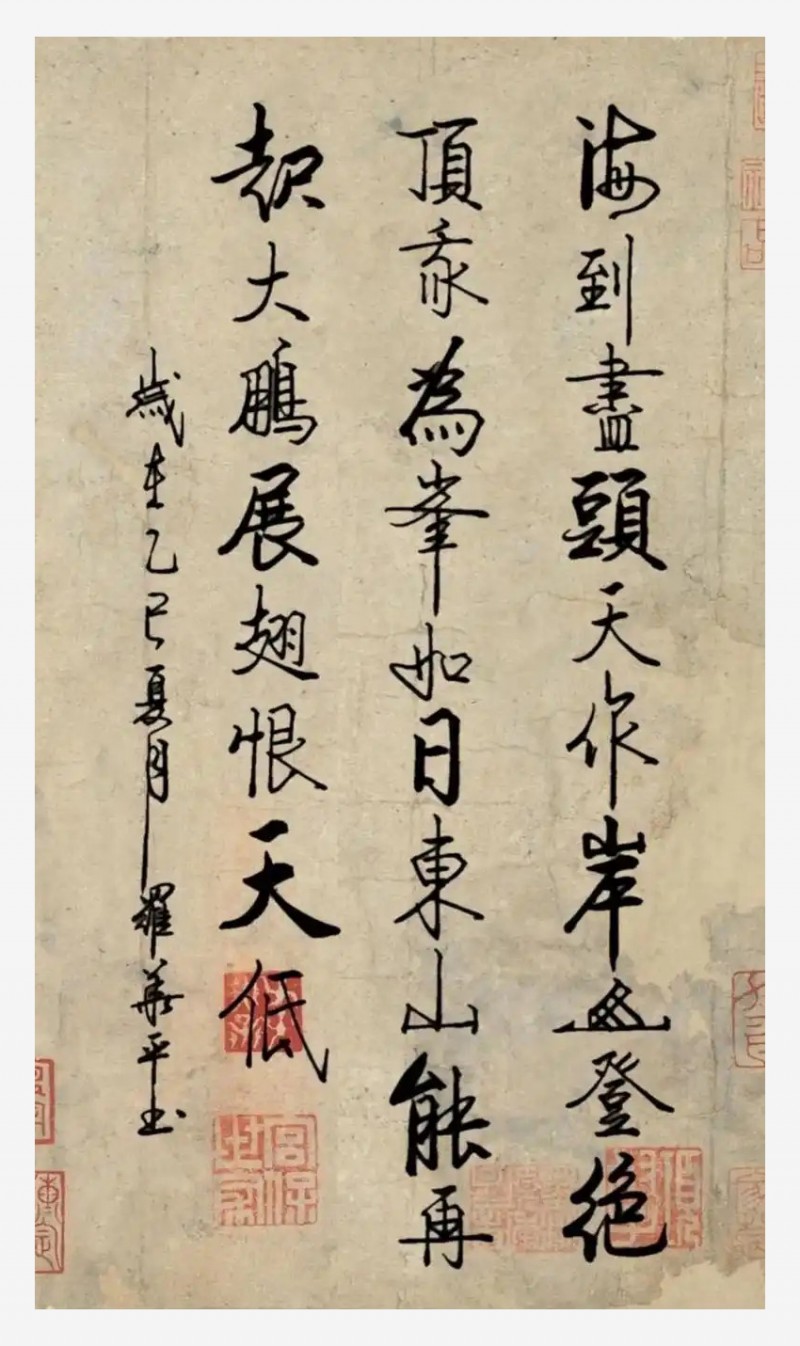 海到盡頭天作岸山登絕
頂我為峯如日東山能再
起大鵬展翅恨天低
歲在乙巳夏月羅華平书
宮保世家